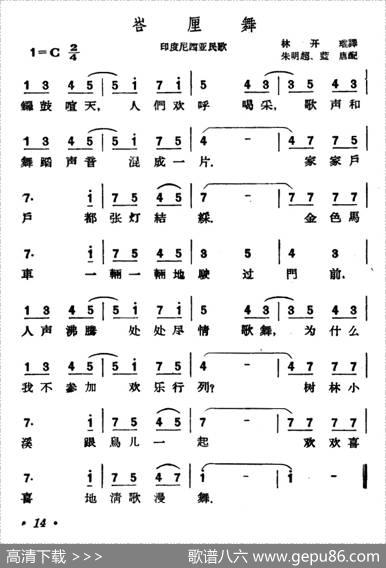 峇厘舞
1=C 2/4
印度尼西亚民歌
林开
朱明超、藍
1 3 4 5 5 i 7 i 5 4 3 5 5 4 3
鑼鼓喧天, 人們欢呼喝采, 歌声和
1 3 4 5 5 1 7 5 4 - - 4 7 7 7
舞蹈声音混成一片. 家家戶
7· i 7 5 4 5 i - - 7 7 7 7
戶都张灯結綵. 金色馬
7· i 7 5 4 5 4 3 5 4 3
車一輛一輛地駛过門前.
1 3 4 5 5 i 7 i 5 4 3 5 5 4 3
人声沸騰处处尽情歌舞, 为什么
1 3 4 5 5 1 7 5 4 - - 4 7 7 7
我不参加欢乐行列? 树林小
7· i 7 5 4 5 i - - 7 7 7 7
溪跟鳥儿一起欢欢喜
7· i 7 5 4 7 i - - i -
喜地清歌漫舞.
· 14 ·
高清下载 >>>
歌谱八六 www.gepu86.com